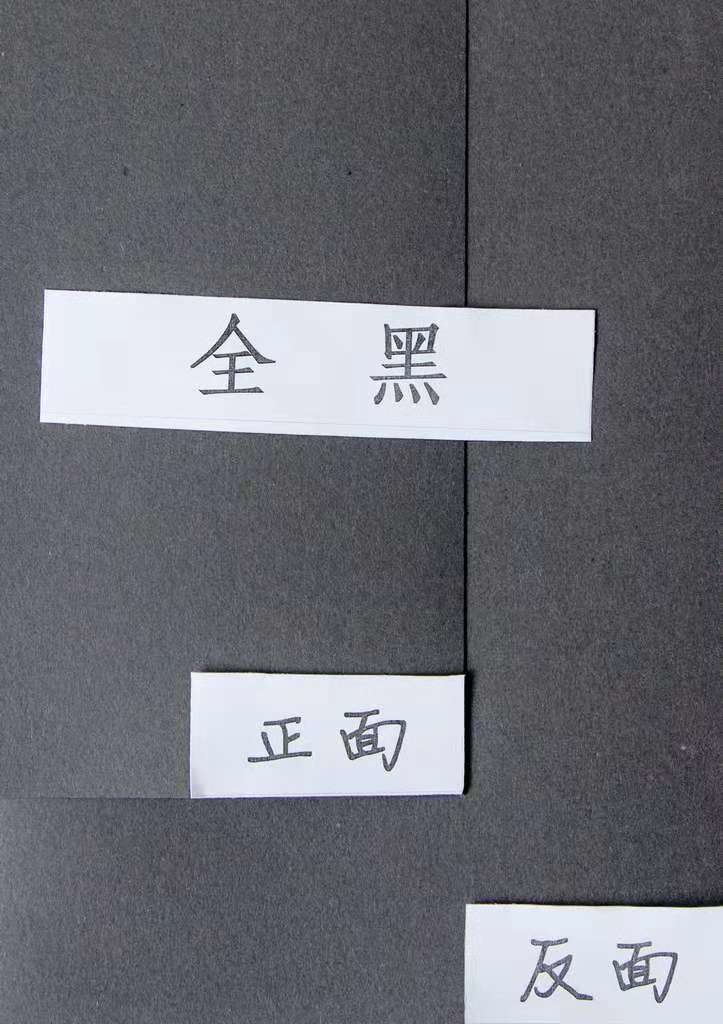 全黑
正面
反面